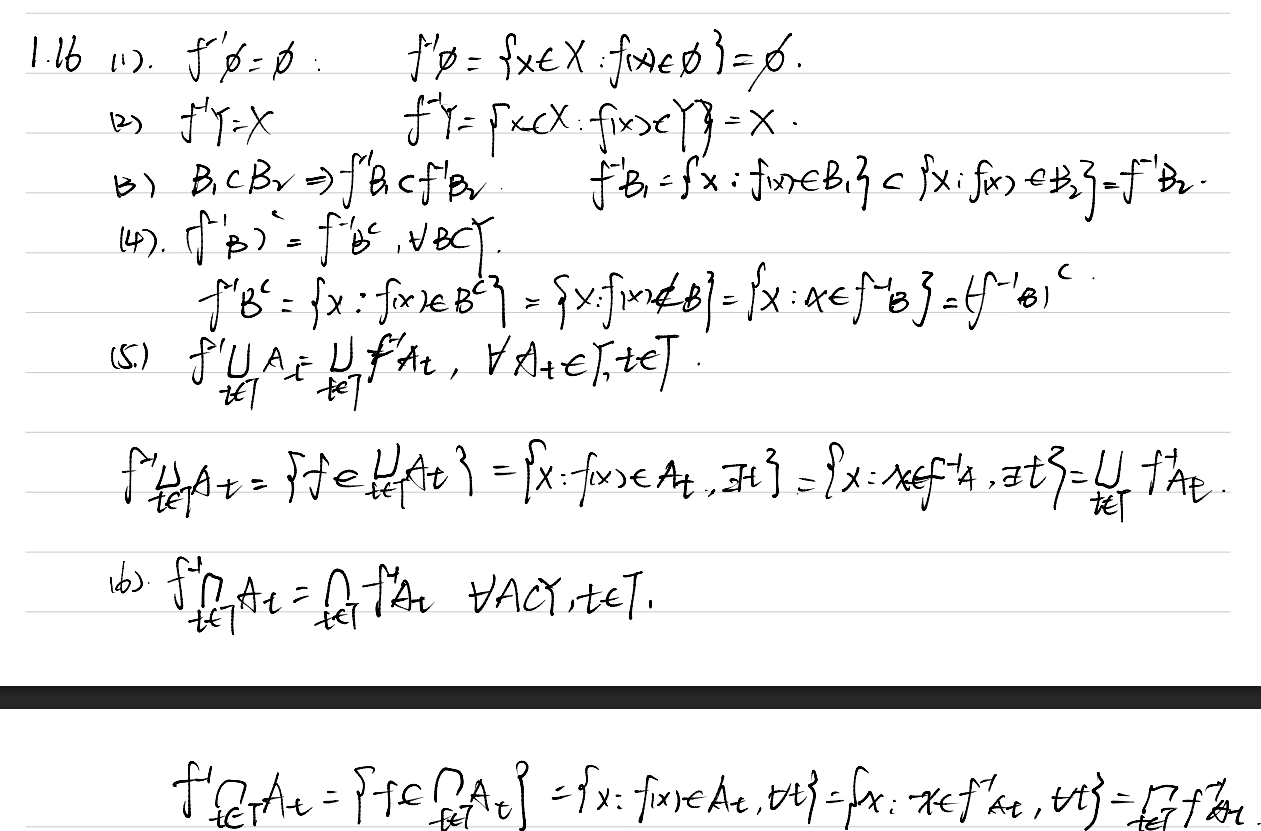 1.16 (1). f⁻¹∅=∅ : f⁻¹∅ = {x∈X : f(x)∈∅}=∅.
(2) f⁻¹Y=X f⁻¹Y= {x∈X : f(x)∈Y}=X.
(3) B₁⊂B₂ ⇒ f⁻¹B₁⊂f⁻¹B₂. f⁻¹B₁ = {x : f(x)∈B₁} ⊂ {x : f(x)∈B₂}=f⁻¹B₂.
(4). (f⁻¹B)ᶜ = f⁻¹Bᶜ, ∀B⊂Y.
f⁻¹Bᶜ = {x : f(x)∈Bᶜ} = {x : f(x)∉B} = {x : x∈f⁻¹B} = (f⁻¹B)ᶜ.
(5.) f⁻¹⋃_{t∈T} A_t = ⋃_{t∈T} f⁻¹A_t, ∀A_t∈T, t∈T.
f⁻¹⋃_{t∈T} A_t = {f∈⋃_{t∈T} A_t} = {x : f(x)∈A_t, ∃t} = {x : x∈f⁻¹A, ∃t} = ⋃_{t∈T} f⁻¹A_t.
(6). f⁻¹⋂_{t∈T} A_t = ⋂_{t∈T} f⁻¹A_t ∀A⊂Y, t∈T.
f⁻¹⋂_{t∈T} A_t = {f∈⋂_{t∈T} A_t} = {x : f(x)∈A_t, ∀t} = {x : x∈f⁻¹A_t, ∀t} = ⋂_{t∈T} f⁻¹A_t.